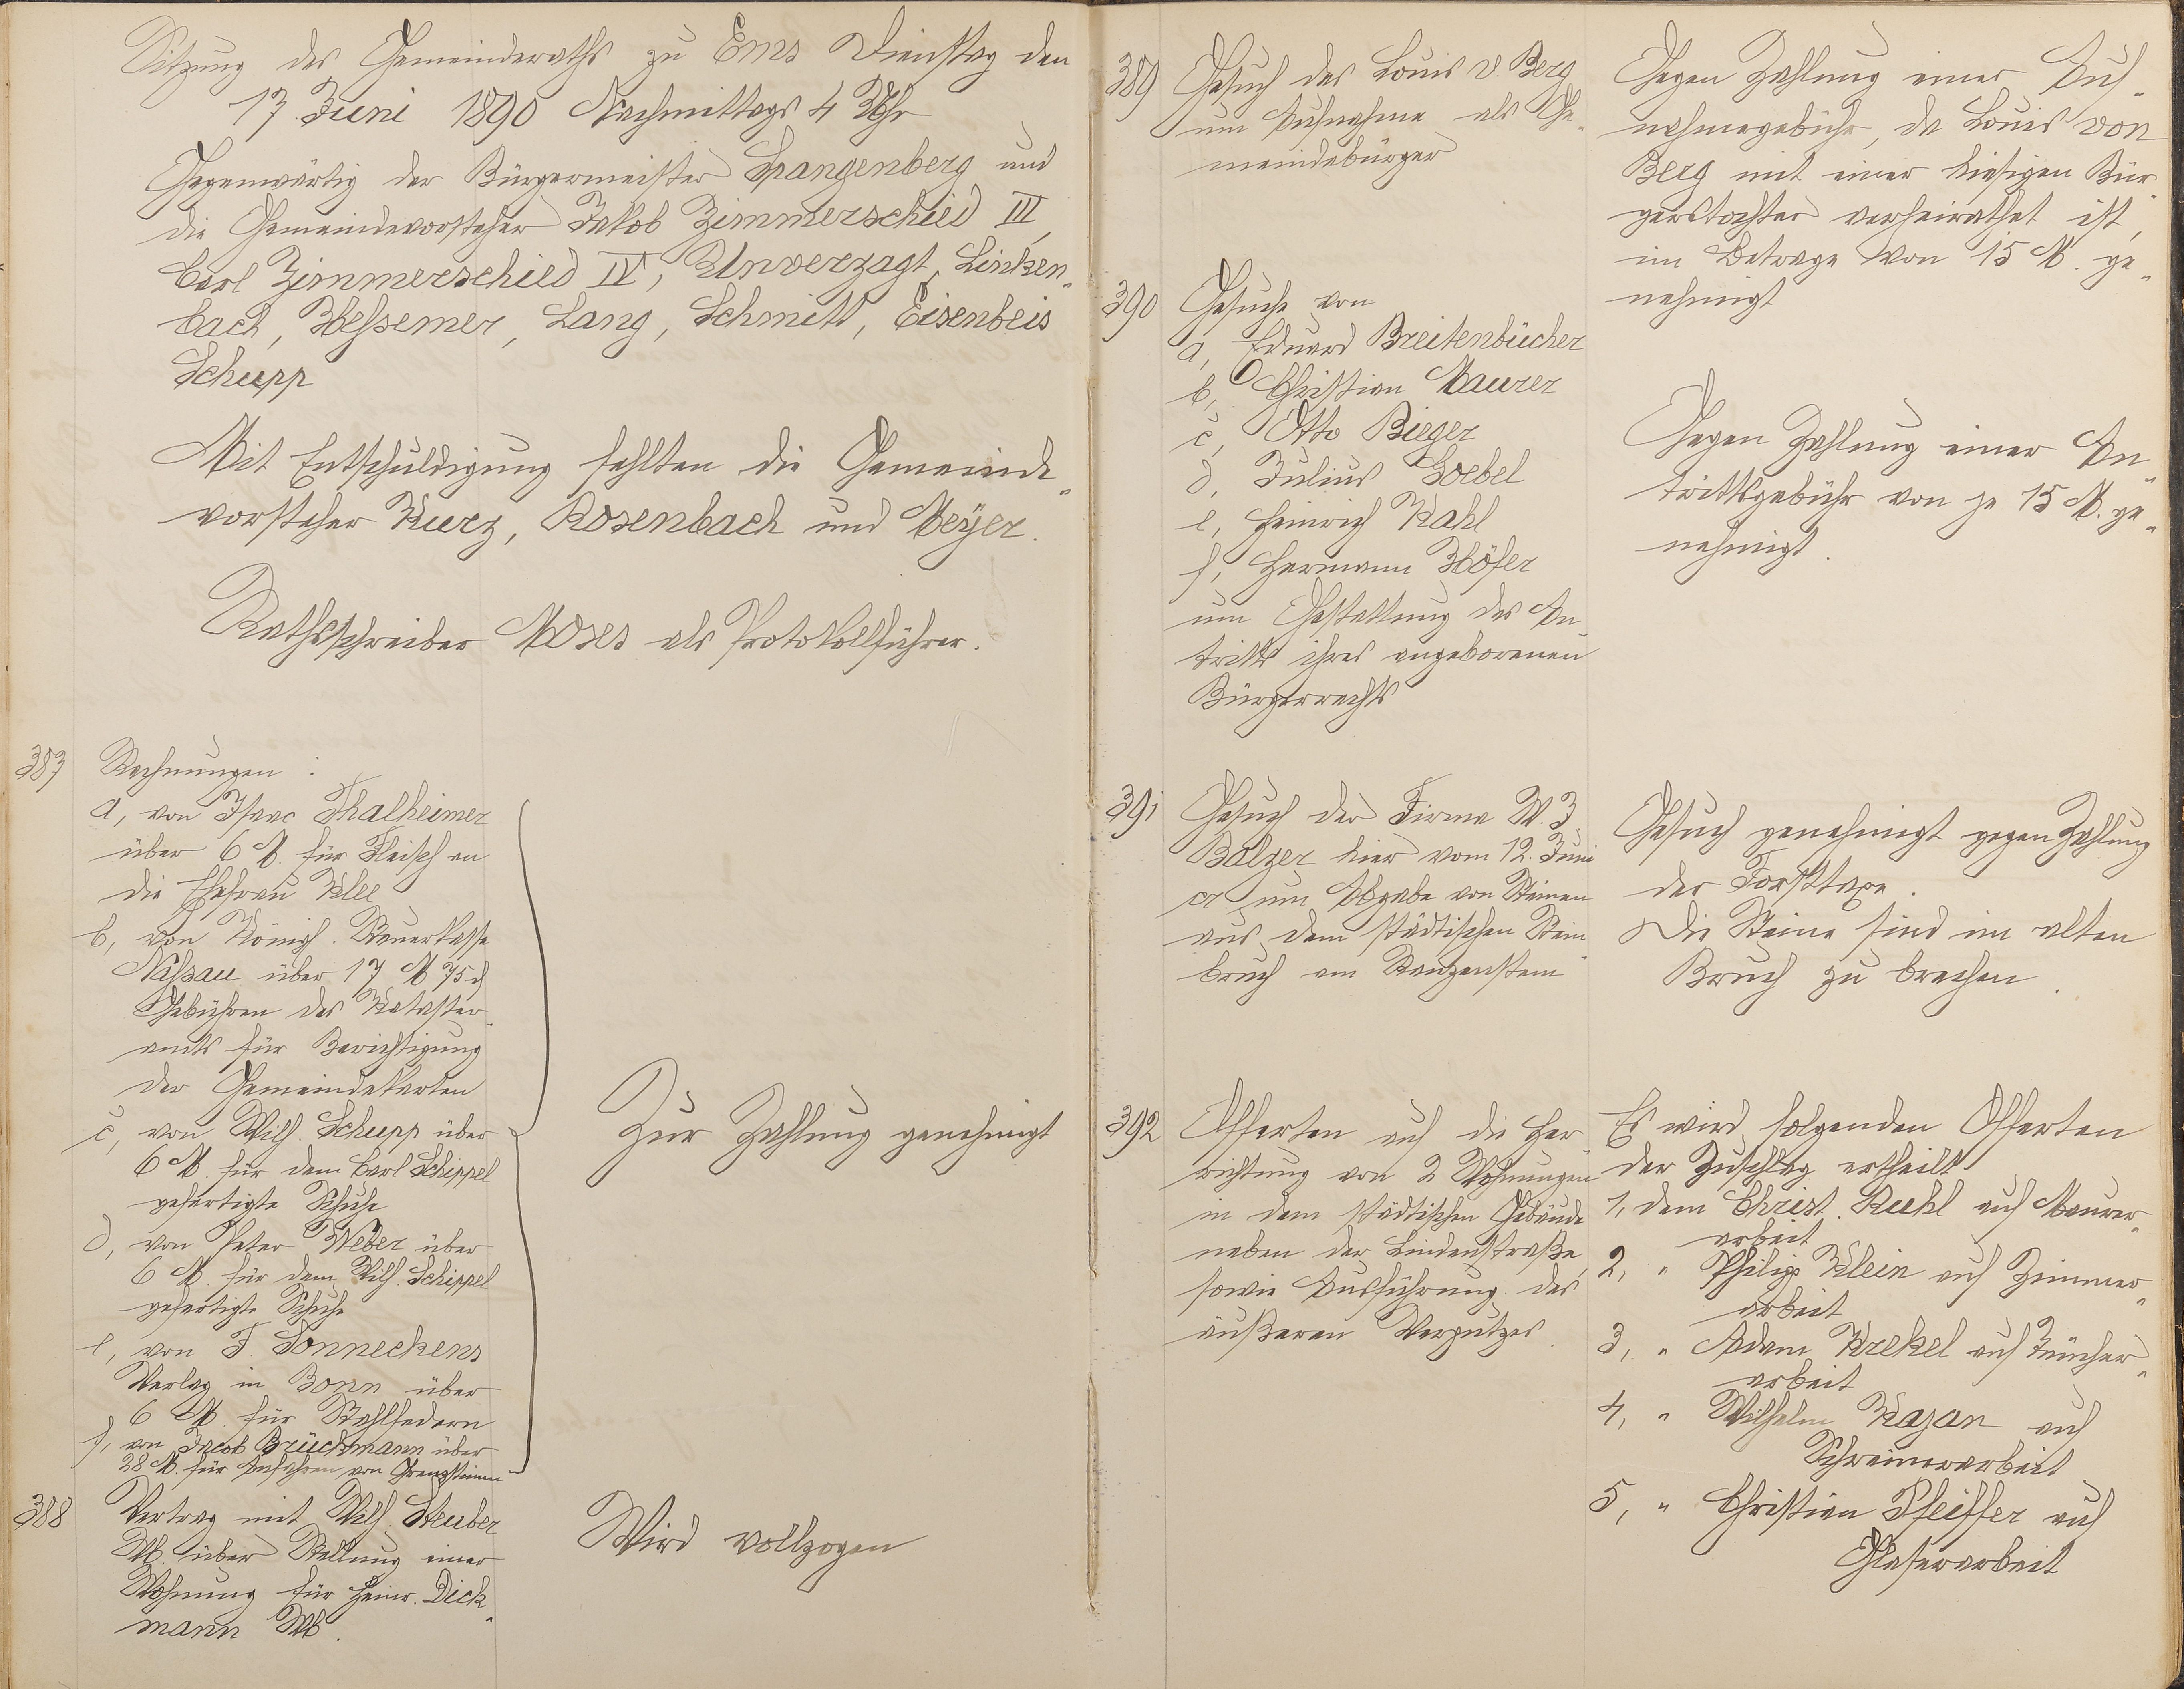 Sitzung des Gemeinderaths zu Ems Dienstag den
17 Juni 1890 Nachmittags 4 Uhr
Gegenwärtig der Bürgermeister Spangenberg und
die Gemeindevorsteher Jakob Zimmerschied III,
Carl Zimmerschied IV, Unverzagt, Linken„
bach, Hessemer, Lang, Schmitt, Eisenbeis
Schupp
Mit Entschuldigung fehlten die Gemeinde„
vorsteher Kurz, Rosenbach und Meÿer.
Rathsschreiber Moses als Protokollführer.
387 Rechnungen :
a, von Isaac Thalheimer
über 6 M. für Fleisch an
die Ehefrau Klee
b, von Königl. Steuerkasse
Nassau über 17 M 75 d
Gebühren des Kataster„
amts für Berichtigung
der Gemeindekarten
c, von Wilh. Schupp über
6 M. für dem Carl Schippel
gefertigte Schuhe
d, von Peter Weber über
6 M. für dem Wilh. Schippel
gefertigte Schuhe
e, von F. Sonneckens
Verlag in Bonn über
6 M. für Stahlfedern
f, von Jacob Brückmann über
28 M. für Anfahren von Grenzsteinen
Zur Zahlung genehmigt
388 Vertrag mit Wilh. Steuber
W. über Stellung einer
Wohnung für Heinr. Dick„
mann W.
Wird vollzogen
389 Gesuch des Louis v. Berg
um Aufnahme als Ge„
meindebürger
Gegen Zahlung einer Auf„
nahmegebühr, da Louis von
Berg mit einer hiesigen Bür„
gerstochter verheirathet ist,
im Betrage von 15 M. ge„
nehmigt
390 Gesuche von
a, Eduard Breitenbücher
b, Christian Maurer
c, Otto Bieger
d, Julius Goebel
e, Heinrich Kahl
f, Hermann Höfer
um Gestattung des An„
tritts ihres angeborenen
Bürgerrechts
Gegen Zahlung einer An„
trittsgebühr von je 15 M. ge„
nehmigt.
391 Gesuch der Firma W. J.
Balzer hier vom 12. Juni
cr um Abgabe von Steinen
aus dem städtischen Stein„
bruch am Kanzenstein
Gesuch genehmigt gegen Zahlung
der Forsttaxe.
Die Steine sind im alten
Bruch zu brechen.
392 Offerten auf die Her„
richtung von 2 Wohnungen
in dem städtischen Gebäude
neben der Lindenstraße,
sowie Ausführung des
äußeren Verputzes.
Es wird folgenden Offerten
der Zuschlag ertheilt
1, dem Christ. Ruhl auf Maurer„
arbeit
2, „ Philipp Klein auf Zimmer„
arbeit
3, „ Adam Krekel auf Tüncher„
arbeit
4, „ Wilhelm Kazan auf
Schreinerarbeit
5, „ Christian Pfeiffer auf
Glaserarbeit